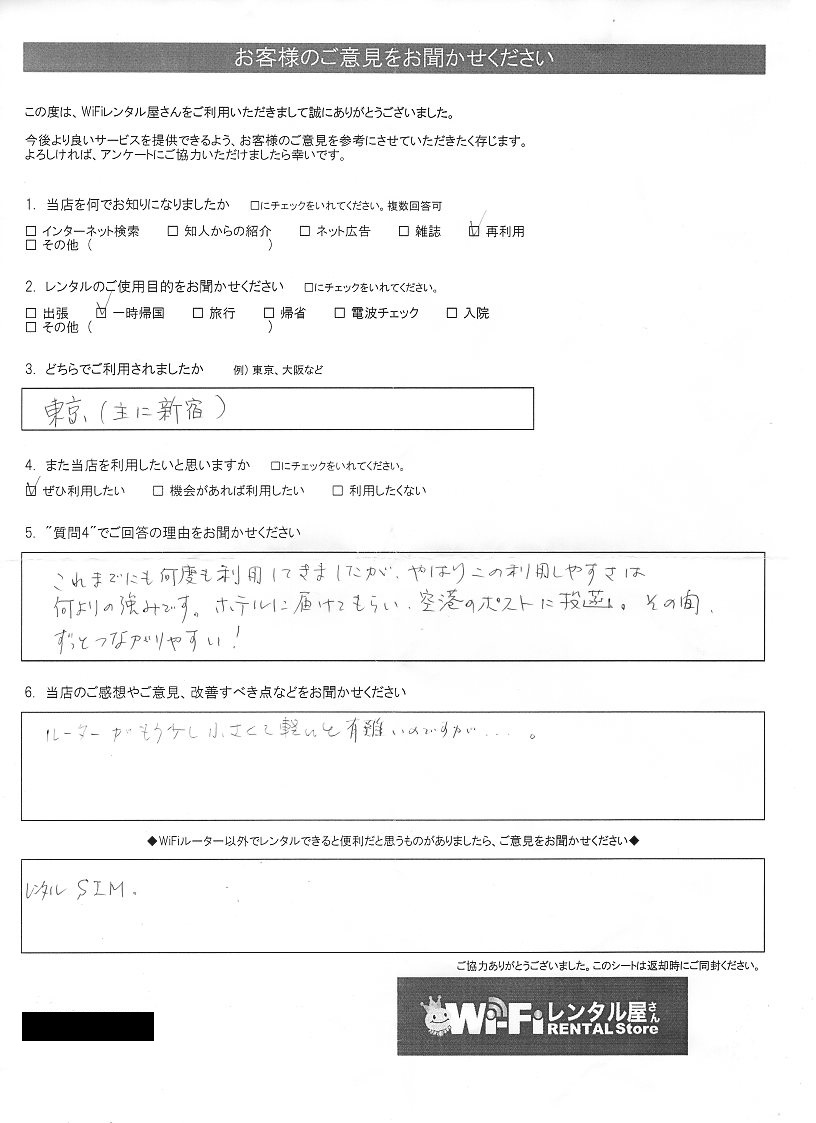 お客様のご意見をお聞かせください
この度は、WiFiレンタル屋さんをご利用いただきまして誠にありがとうございました。
今後より良いサービスを提供できるよう、お客様のご意見を参考にさせていただきたく存じます。
よろしければ、アンケートにご協力いただけましたら幸いです。
1. 当店を何でお知りになりましたか □にチェックをいれてください。複数回答可
□ インターネット検索 □ 知人からの紹介 □ ネット広告 □ 雑誌 ☑ 再利用
□ その他 ( )
2. レンタルのご使用目的をお聞かせください □にチェックをいれてください。
□ 出張 ☑ 一時帰国 □ 旅行 □ 帰省 □ 電波チェック □ 入院
□ その他 ( )
3. どちらでご利用されましたか 例) 東京、大阪など
東京、(主に新宿)
4. また当店を利用したいと思いますか □にチェックをいれてください。
☑ ぜひ利用したい □ 機会があれば利用したい □ 利用したくない
5. "質問4"でご回答の理由をお聞かせください
これまでにも何度も利用してきましたが、やはりこの利用しやすさは
何よりの強みです。ホテルに届けてもらい、空港のポストに投函。その間、
ずっとつながりやすい!
6. 当店のご感想やご意見、改善すべき点などをお聞かせください
ルーターがもう少し小さくて軽いと有難いのですが....。
◆WiFiルーター以外でレンタルできると便利だと思うものがありましたら、ご意見をお聞かせください◆
レンタル SIM.
ご協力ありがとうございました。このシートは返却時にご同封ください。
Wi-Fiレンタル屋さん
RENTAL Store